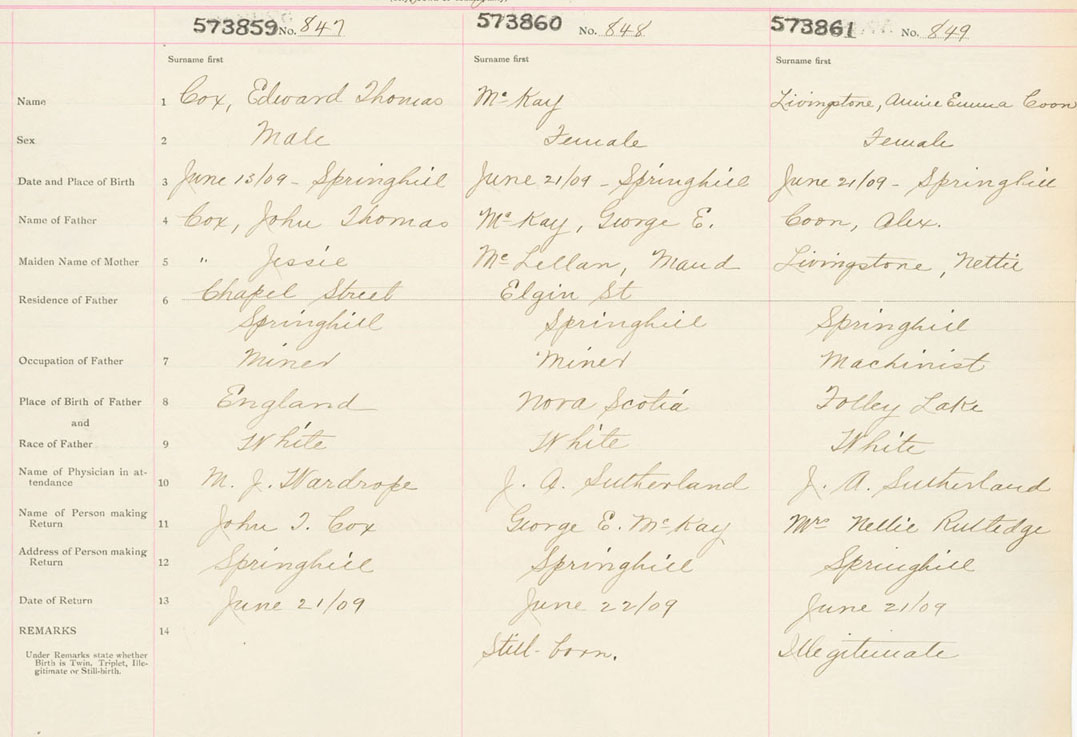 573859 No. 847
573860 No. 848
573861 No. 849
Surname first
Surname first
Surname first
Name 1 Cox, Edward Thomas McKay Livingstone, Annie Emma Coon
Sex 2 Male Female Female
Date and Place of Birth 3 June 13/09 - Springhill June 21/09 - Springhill June 21/09 - Springhill
Name of Father 4 Cox, John Thomas McKay, George E. Coon, Alex.
Maiden Name of Mother 5 " Jessie McLellan, Maud Livingstone, Nettie
Residence of Father 6 Chapel Street Elgin St
Springhill Springhill Springhill
Occupation of Father 7 Miner Miner Machinist
Place of Birth of Father 8 England Nova Scotia Folley Lake
and
Race of Father 9 White White White
Name of Physician in at-
tendance 10 M. J. Wardrope J. A. Sutherland J. A. Sutherland
Name of Person making
Return 11 John T. Cox George E. McKay Mrs Nellie Rutledge
Address of Person making
Return 12 Springhill Springhill Springhill
Date of Return 13 June 21/09 June 22/09 June 21/09
REMARKS 14
Still-born. Illegitimate
Under Remarks state whether
Birth is Twin, Triplet, Ille-
gitimate or Still-birth.